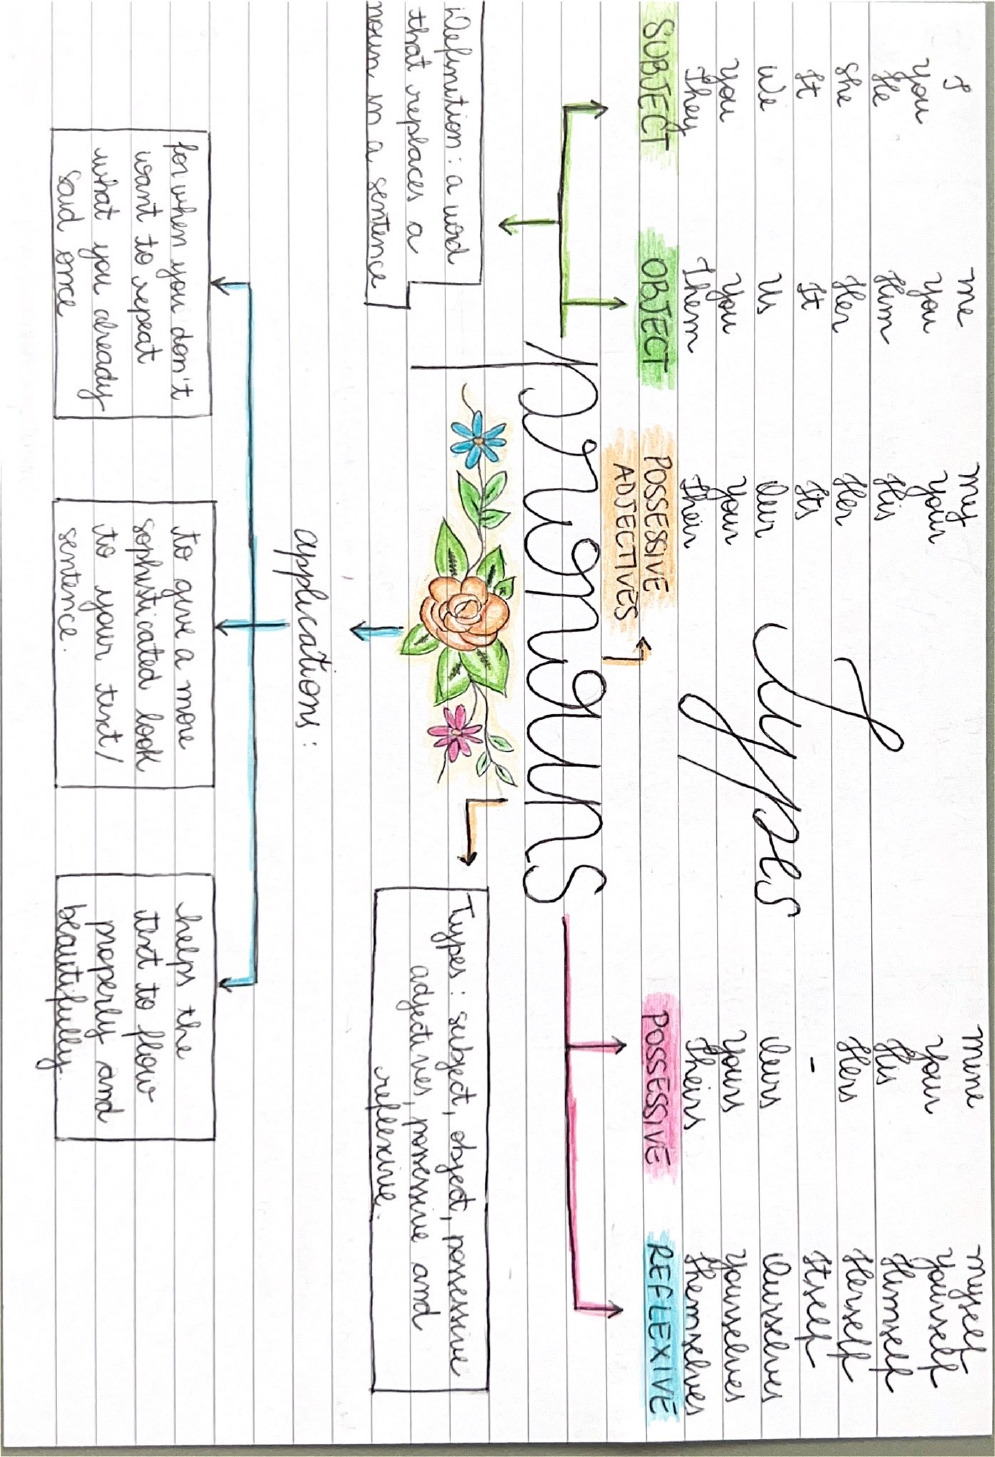 I
You
He
She
It
We
You
They
SUBJECT
me
You
Him
Her
It
Us
You
Them
OBJECT
my
Your
His
Her
Its
Our
Your
Their
POSSESSIVE
ADJECTIVES
Types
mine
Your
His
Hers
-
Ours
Yours
Theirs
POSSESSIVE
myself
Yourself
Himself
Herself
Itself
Ourselves
Yourselves
Themselves
REFLEXIVE
pronouns
Definition: a word
that replaces a
noun in a sentence
Types: subject, object, possessive
adjectives, possessive and
reflexive.
applications:
for when you don't
want to repeat
what you already
said once
to give a more
sophisticated look
to your text/
sentence.
helps the
text to flow
properly and
beautifully.